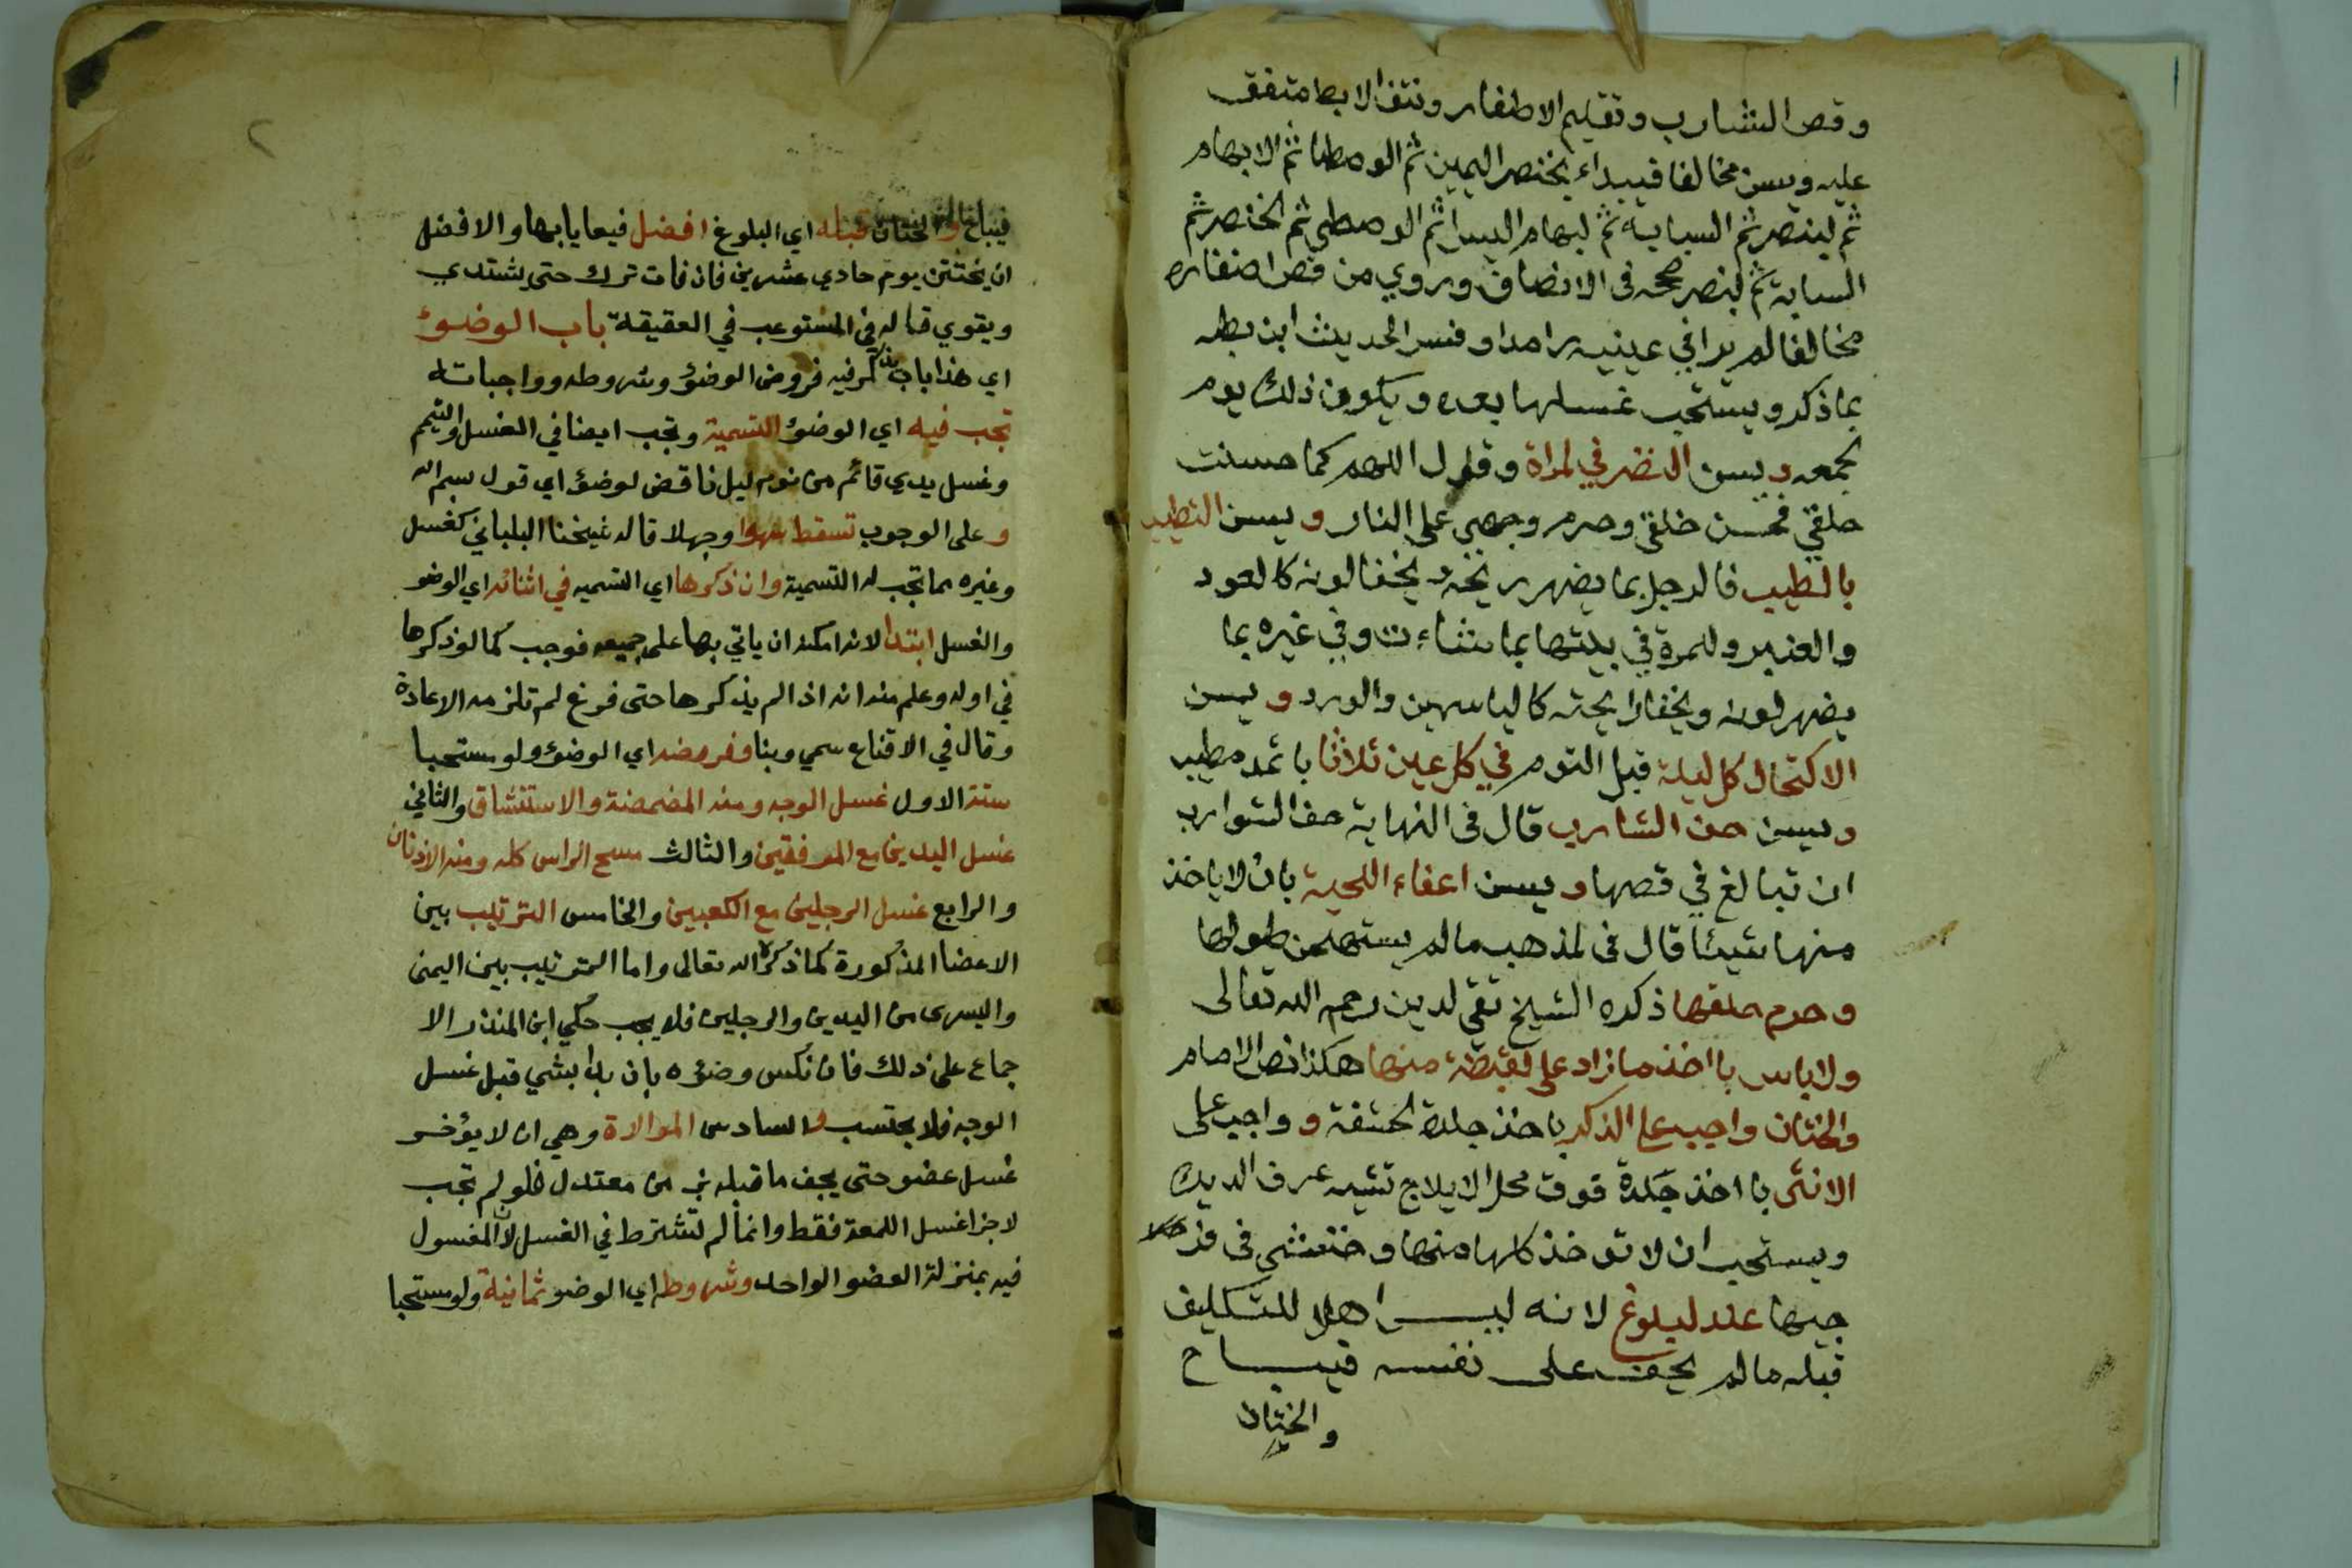 وقص الشارب وتقليم الاظفار ونتف الابط متفق
عليه ويسن مخالفا فيبداء بخنصر اليمين ثم الوسطا ثم الابهام
ثم لبنصر ثم السبابة ثم لبهام اليسرا ثم الوسطي ثم الخنصر ثم
السبابة ثم لبنصر صححه في الانصاف وروي من قص اضفاره
مخالفا لم يرا في عينيه رامدا وفسر الحديث ابن بطه
بما ذكر ويستحب غسلها بعده ويكون ذلك يوم
لجمعه ويسن النضر في لمراة وقول اللهم كما حسنت
خلقي فحسن خلقي وحرم وجهي على النار ويسن التطيب
بالطيب فالرجل بما يضهر ريحه ويخفا لونه كالعود
والعنبر وللمرة في بيتها بما شاءت وفي غيره بما
يضهر لونه ويخفا رايحته كالياسمين والورد ويسن
الاكتحال كل ليلة قبل النوم في كل عين ثلاثا باثمد مطيب
ويسن حف الشارب قال في النهاية حف الشوارب
ان تبالغ في قصها ويسن اعفاء اللحية بان لا ياخذ
منها شيئا قال في لمذهب مالم يستهجن طولها
وحرم حلقها ذكره الشيخ تقي لدين رحمه الله تعالى
ولا باس بااخذ مازاد على لقبظة منها هكذا نص الامام
والختان واجب على الذكر باخذ جلدة لحشفة وواجب على
الانثى بااخذ جلدة فوق محل الايلاج تشبه عرف الديك
ويستحب ان لا توخذ كلها منها وخنثى في فر
جيها عند لبلوغ لانه ليس اهلا للتكليف
قبله مالم يخف على نفسه فيباح
والختان
فيباح والختان قبله اي البلوغ افضل فيما يابها والافضل
ان يختتن يوم حادي عشرين فان فات ترك حتى يشتد
ويقوي قاله في المستوعب في العقيقة باب الوضوء
اي هذا باب يذكر فيه فروض الوضؤ وشروطه وواجباته
تجب فيه اي الوضؤ التسمية وتجب ايضا في الغسل والتيمم
وغسل يدي قائم من نوم ليل ناقض لوضؤ اي قول بسم الله
وعلى الوجوب تسقط سهوا وجهلا قاله شيخنا البلباني كغسل
وغيره مما تجب له التسمية وان ذكرها اي التسميه في اثنائه اي الوضو
والغسل ابتدا لانه امكنه ان ياتي بها على جميعه فوجب كما لو ذكرها
في اوله وعلم منه انه اذا لم يذكرها حتى فرغ لم تلزمه الاعادة
وقال في الاقناع سمي وبنا وفروضه اي الوضؤ ولو مستحبا
ستة الاول غسل الوجه ومنه المضمضة والاستنشاق والثاني
غسل اليدين مع المرفقين والثالث مسح الراس كله ومنه الاذنان
والرابع غسل الرجلين مع الكعبين والخامس الترتيب بين
الاعضا المذكورة كما ذكره الله تعالى واما الترتيب بين اليمنى
واليسرى من اليدين والرجلين فلا يجب حكي ابن المنذر الا
جماع على ذلك فان نكس وضؤه بان بدا بشي قبل غسل
الوجه فلا يحتسب والسادس الموالاة وهي ان لا يؤخر
غسل عضو حتى يجف ما قبله بزمن معتدل فلو لم تجب
لاجزا غسل اللمعة فقط وانما لم تشترط في الغسل لان المغسول
فيه بمنزلة العضو الواحد وشروطه اي الوضو ثمانية ولو مستحبا